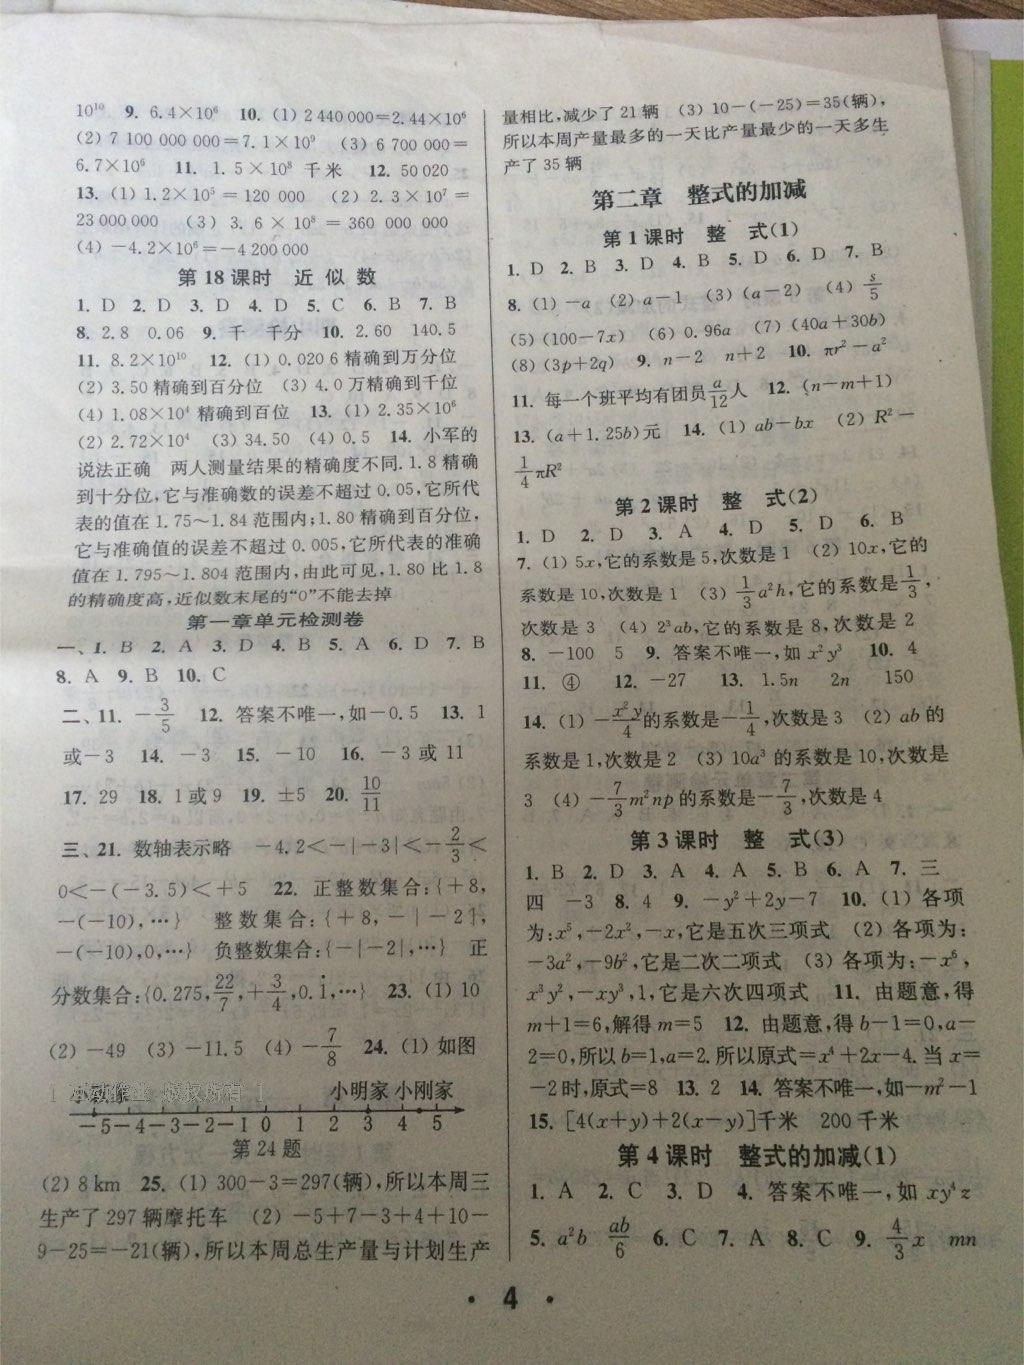 10¹⁰ 9. 6.4×10⁶ 10. (1) 2 440 000=2.44×10⁶
(2) 7 100 000 000=7.1×10⁹ (3) 6 700 000=
6.7×10⁶ 11. 1.5×10⁸ 千米 12. 50 020
13. (1) 1.2×10⁵=120 000 (2) 2.3×10⁷=
23 000 000 (3) 3.6×10⁸=360 000 000
(4) -4.2×10⁶=-4 200 000
第18课时 近似数
1. D 2. D 3. D 4. D 5. C 6. B 7. B
8. 2.8 0.06 9. 千 千分 10. 2.60 140.5
11. 8.2×10¹⁰ 12. (1) 0.020 6精确到万分位
(2) 3.50精确到百分位 (3) 4.0万精确到千位
(4) 1.08×10⁴精确到百位 13. (1) 2.35×10⁶
(2) 2.72×10⁴ (3) 34.50 (4) 0.5 14. 小军的
说法正确 两人测量结果的精确度不同.1.8精确
到十分位,它与准确数的误差不超过0.05,它所代
表的值在1.75~1.84范围内;1.80精确到百分位,
它与准确值的误差不超过0.005,它所代表的准确
值在1.795~1.804范围内,由此可见,1.80比1.8
的精确度高,近似数末尾的“0”不能去掉
第一章单元检测卷
一、1. B 2. A 3. D 4. B 5. A 6. D 7. B
8. A 9. B 10. C
二、11. -3/5 12. 答案不唯一,如-0.5 13. 1
或-3 14. -3 15. -10 16. -3或11
17. 29 18. 1或9 19. ±5 20. 10/11
三、21. 数轴表示略 -4.2<-|-3|<-2/3<
0<-(-3.5)<+5 22. 正整数集合:{+8,
-(-10),…} 整数集合:{+8,-|-2|,
-(-10),0,…} 负整数集合:{-|-2|,…} 正
分数集合:{0.275,22/7,+3/4,0.1̇,…} 23. (1) 10
(2) -49 (3) -11.5 (4) -7/8 24. (1) 如图
小明家 小刚家
-5-4-3-2-1 0 1 2 3 4 5
第24题
(2) 8 km 25. (1) 300-3=297(辆),所以本周三
生产了297辆摩托车 (2) -5+7-3+4+10-
9-25=-21(辆),所以本周总生产量与计划生产
量相比,减少了21辆 (3) 10-(-25)=35(辆),
所以本周产量最多的一天比产量最少的一天多生
产了35辆
第二章 整式的加减
第1课时 整 式(1)
1. D 2. B 3. D 4. B 5. D 6. D 7. B
8. (1) -a (2) a-1 (3) (a-2) (4) s/5
(5) (100-7x) (6) 0.96a (7) (40a+30b)
(8) (3p+2q) 9. n-2 n+2 10. πr²-a²
11. 每一个班平均有团员a/12人 12. (n-m+1)
13. (a+1.25b)元 14. (1) ab-bx (2) R²-
1/4πR²
第2课时 整 式(2)
1. D 2. D 3. A 4. D 5. D 6. B
7. (1) 5x,它的系数是5,次数是1 (2) 10x,它的
系数是10,次数是1 (3) 1/3a²h,它的系数是1/3,
次数是3 (4) 2³ab,它的系数是8,次数是2
8. -100 5 9. 答案不唯一,如x²y³ 10. 4
11. ④ 12. -27 13. 1.5n 2n 150
14. (1) -x²y/4的系数是-1/4,次数是3 (2) ab的
系数是1,次数是2 (3) 10a³的系数是10,次数是
3 (4) -7/3m²np的系数是-7/3,次数是4
第3课时 整 式(3)
1. B 2. D 3. A 4. A 5. B 6. A 7. 三
四 -3 8. 4 9. -y²+2y-7 10. (1) 各项
为:x⁵,-2x²,-x,它是五次三项式 (2) 各项为:
-3a²,-9b²,它是二次二项式 (3) 各项为:-x⁶,
x³y²,-xy³,1,它是六次四项式 11. 由题意,得
m+1=6,解得m=5 12. 由题意,得b-1=0,a-
2=0,所以b=1,a=2.所以原式=x⁴+2x-4.当x=
-2时,原式=8 13. 2 14. 答案不唯一,如-m²-1
15. [4(x+y)+2(x-y)]千米 200千米
第4课时 整式的加减(1)
1. A 2. C 3. D 4. 答案不唯一,如xy⁴z
5. a²b ab/6 6. C 7. A 8. C 9. 4/3x mn
· 4 ·